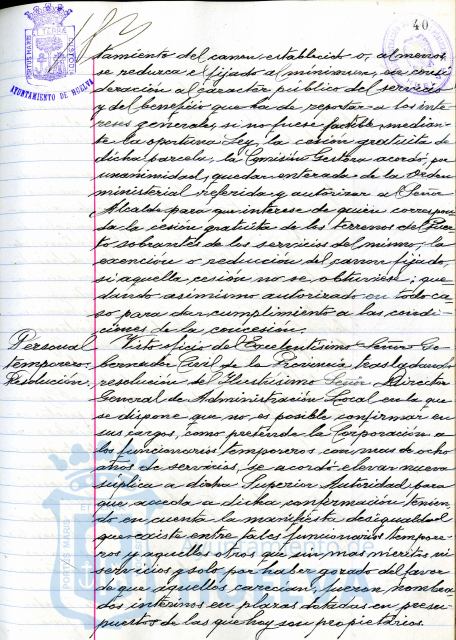 40
PORTUS MARIS ET TERRAE CUSTODIA
AYUNTAMIENTO DE HUELVA
tamiento del canon establecido o, al menos,
se reduzca el fijado al mínimum, en consi-
deración al carácter público del servicio
y del beneficio que ha de reportar a los inte-
reses generales, si no fuese factible, median-
te la oportuna Ley, la cesión gratuita de
dicha parcela, la Comisión Gestora acordó, por
unanimidad, quedar enterada de la Orden
ministerial referida y autorizar al Señor
Alcalde para que interese de quien correspon-
da la cesión gratuita de los terrenos del Puer-
to sobrantes de los servicios del mismo, la
exención o reducción del canon fijado,
si aquella cesión no se obtuviese; que-
dando asimismo autorizado en todo ca-
so para dar cumplimiento a las condi-
ciones de la concesión.
Personal
temporero.
Resolución.
Visto oficio del Excelentísimo Señor Go-
bernador Civil de la Provincia, trasladando
resolución del Ilustrísimo Señor Director
General de Administración Local en la que
se dispone que no es posible confirmar en
sus cargos, como pretende la Corporación a
los funcionarios temporeros con mas de ocho
años de servicios, se acordó elevar nueva
súplica a dicha Superior Autoridad para
que acceda a dicha confirmación tenien-
do en cuenta la manifiesta desigualdad
que existe entre tales funcionarios tempore-
ros y aquellos otros que sin mas méritos ni
servicios y solo por haber gozado del favor
de que aquellos carecían, fueron nombra-
dos interinos en plazas dotadas en presu-
puestos de las que hoy son propietarios.
Ayuntamiento de
HUELVA